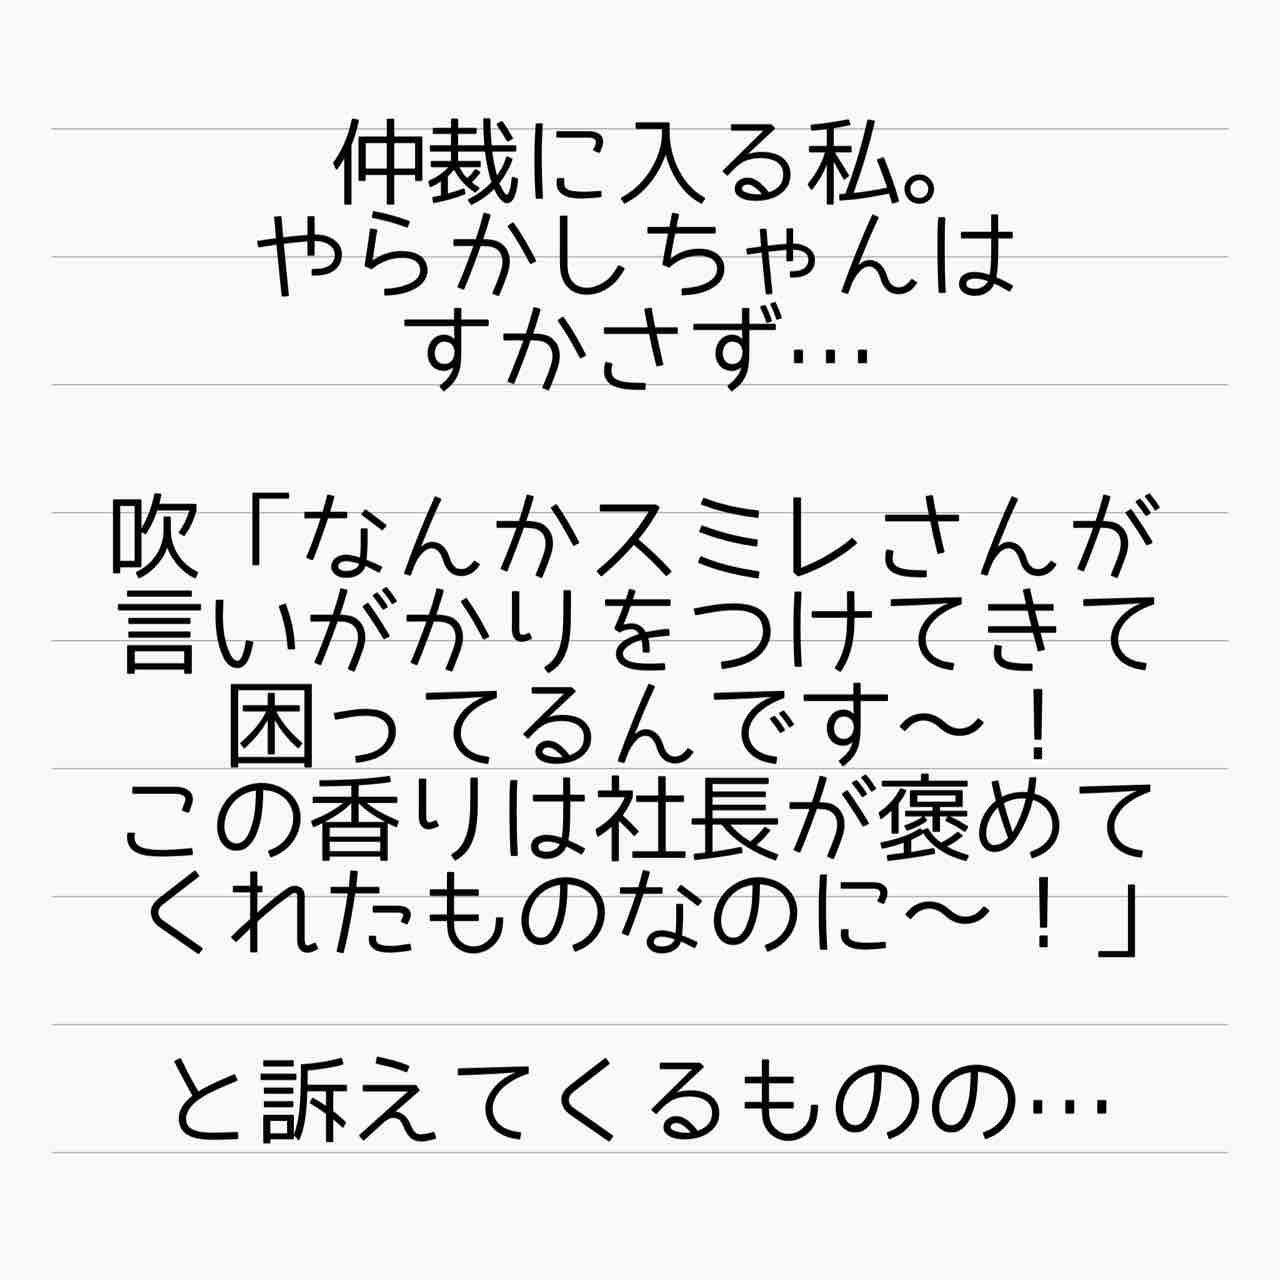 仲裁に入る私。
やらかしちゃんは
すかさず…
吹「なんかスミレさんが
言いがかりをつけてきて
困ってるんです〜！
この香りは社長が褒めて
くれたものなのに〜！」
と訴えてくるものの…